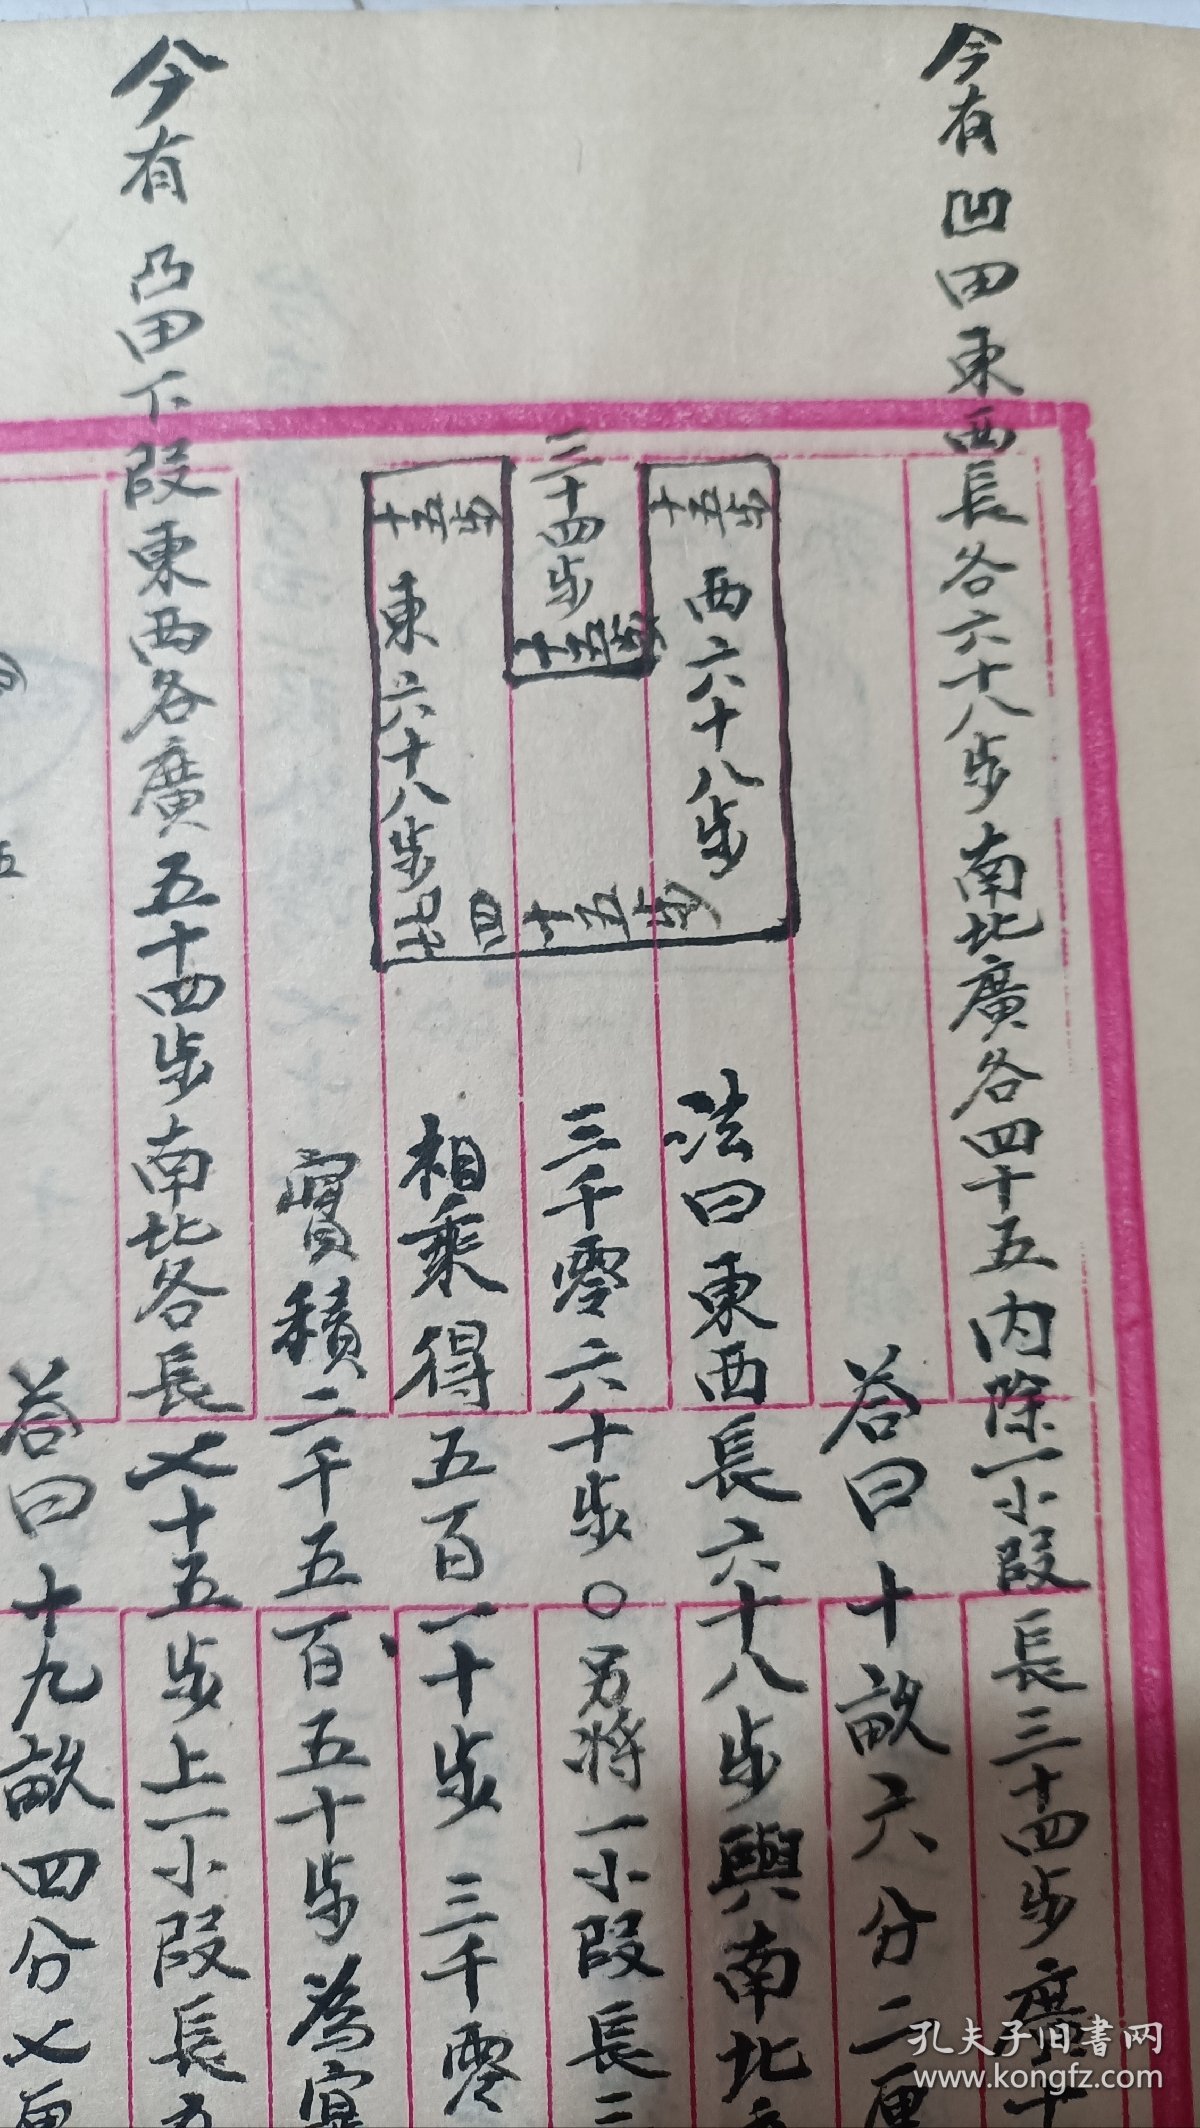 今有凹田東西長各六十八步南北廣各四十五内除一小段長三十四步廣十
答曰十畝六分二厘
法曰東西長六十八步與南北
三千零六十步○另將一小段長三
相乘得五百一十步三千零
實積二千五百五十步為實
十五步
三十四步
十五步
西六十八步
十五步
東六十八步
北四十五步
今有凸田下段東西各廣五十四步南北各長七十五步上一小段長五
答曰十九畝四分七厘
五
孔夫子旧書网
www.kongfz.com